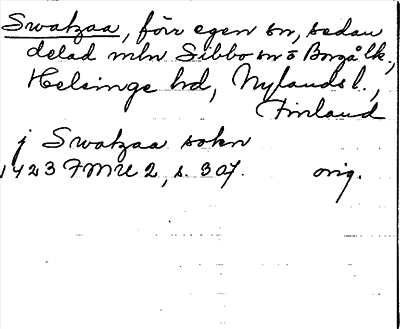 Swatzaa, förr egen sn, sedan
delad mln Sibbo sn o Borgå lk.,
Helsinge hd, Nylands l.,
Finland
j Swatzaa sokn
1423 FMU 2, s. 307. orig.